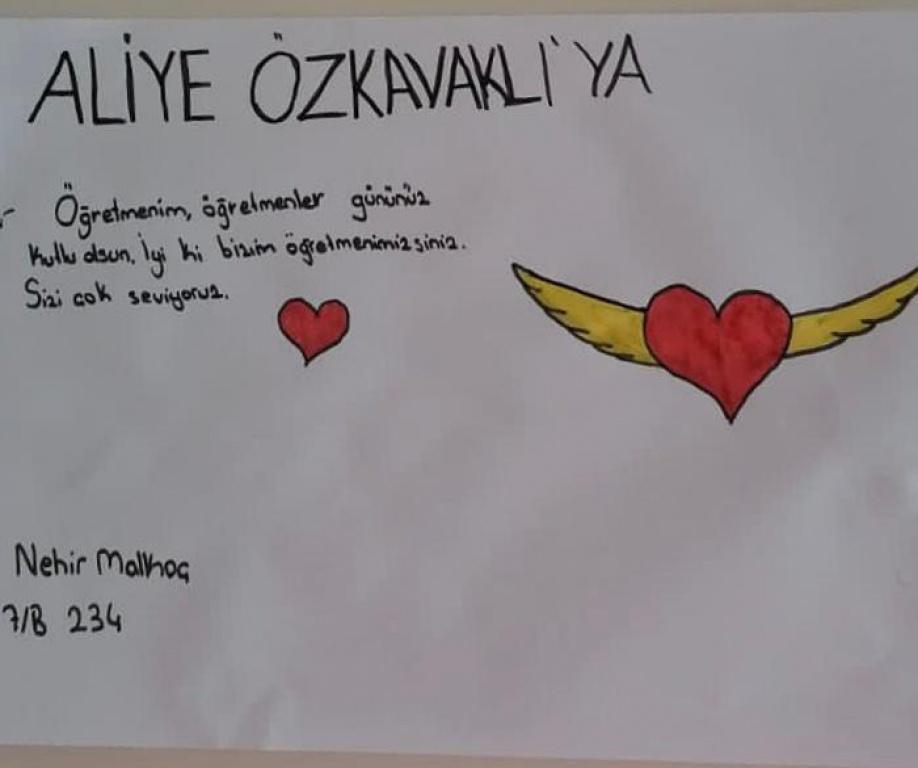 ALİYE ÖZKAVAKLI'YA
Öğretmenim, öğretmenler gününüz
kutlu olsun. İyi ki bizim öğretmenimizsiniz.
Sizi çok seviyoruz.
Nehir Malkoç
7/B 234